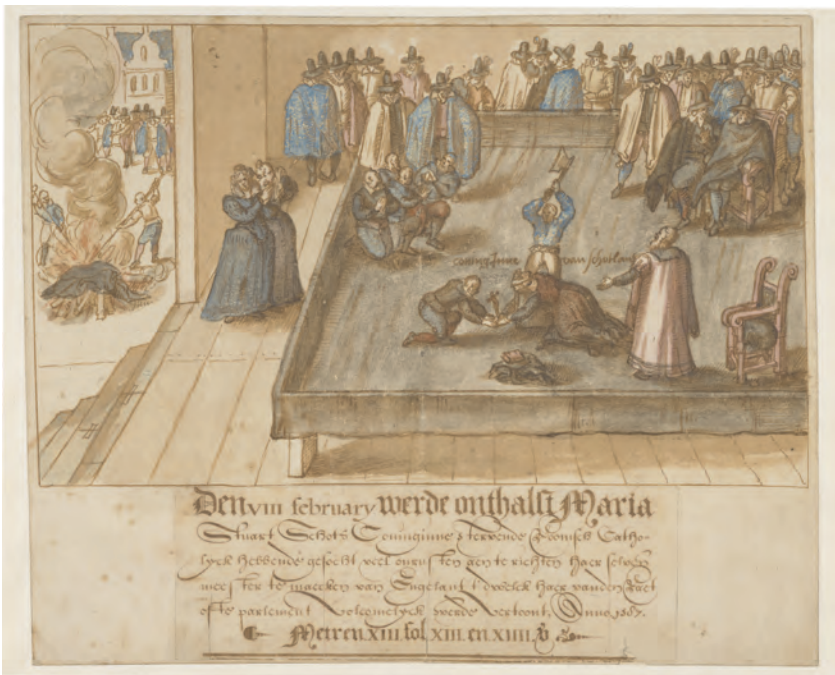 coninginne van schotlant
Den VIII february werde onthalst Maria
Stuart Schots Coninginne stervende Roomsch Catho-
lyck hebbende gesocht veel onrusten aen te richten haer selven
meester te maecken van Engelant t'welck haer vanden Raet
ofte parlement volcomelyck werde vertoont, Anno 1587.
Meteren XIII fol XIII en XIIII